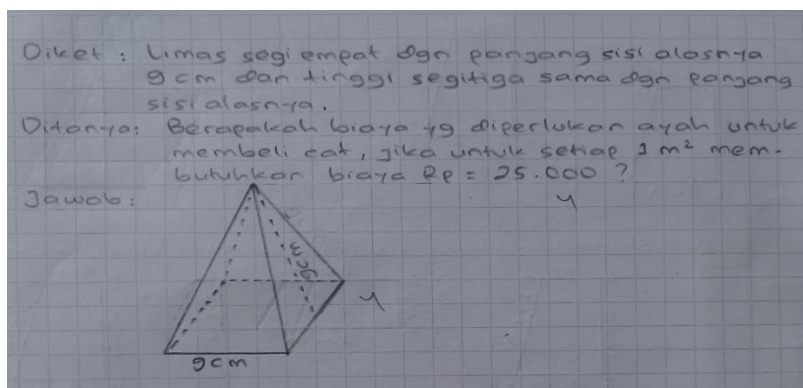 Diket : Limas segi empat dgn panjang sisi alasnya
9 cm dan tinggi segitiga sama dgn panjang
sisi alasnya.
Ditanya: Berapakah biaya yg diperlukan ayah untuk
membeli cat, jika untuk setiap 1 m² mem-
butuhkan biaya Rp = 25.000 ?
Jawab :
9cm
9cm